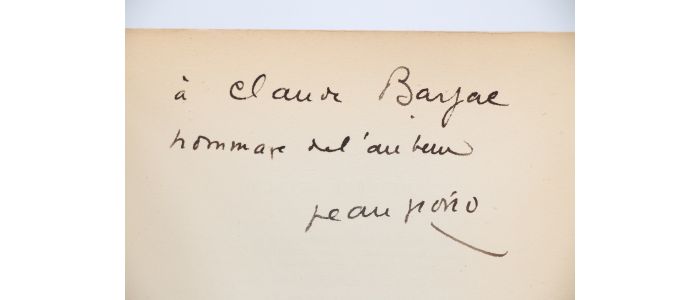 à Claude Barjac
hommage de l'auteur
Jean Giono